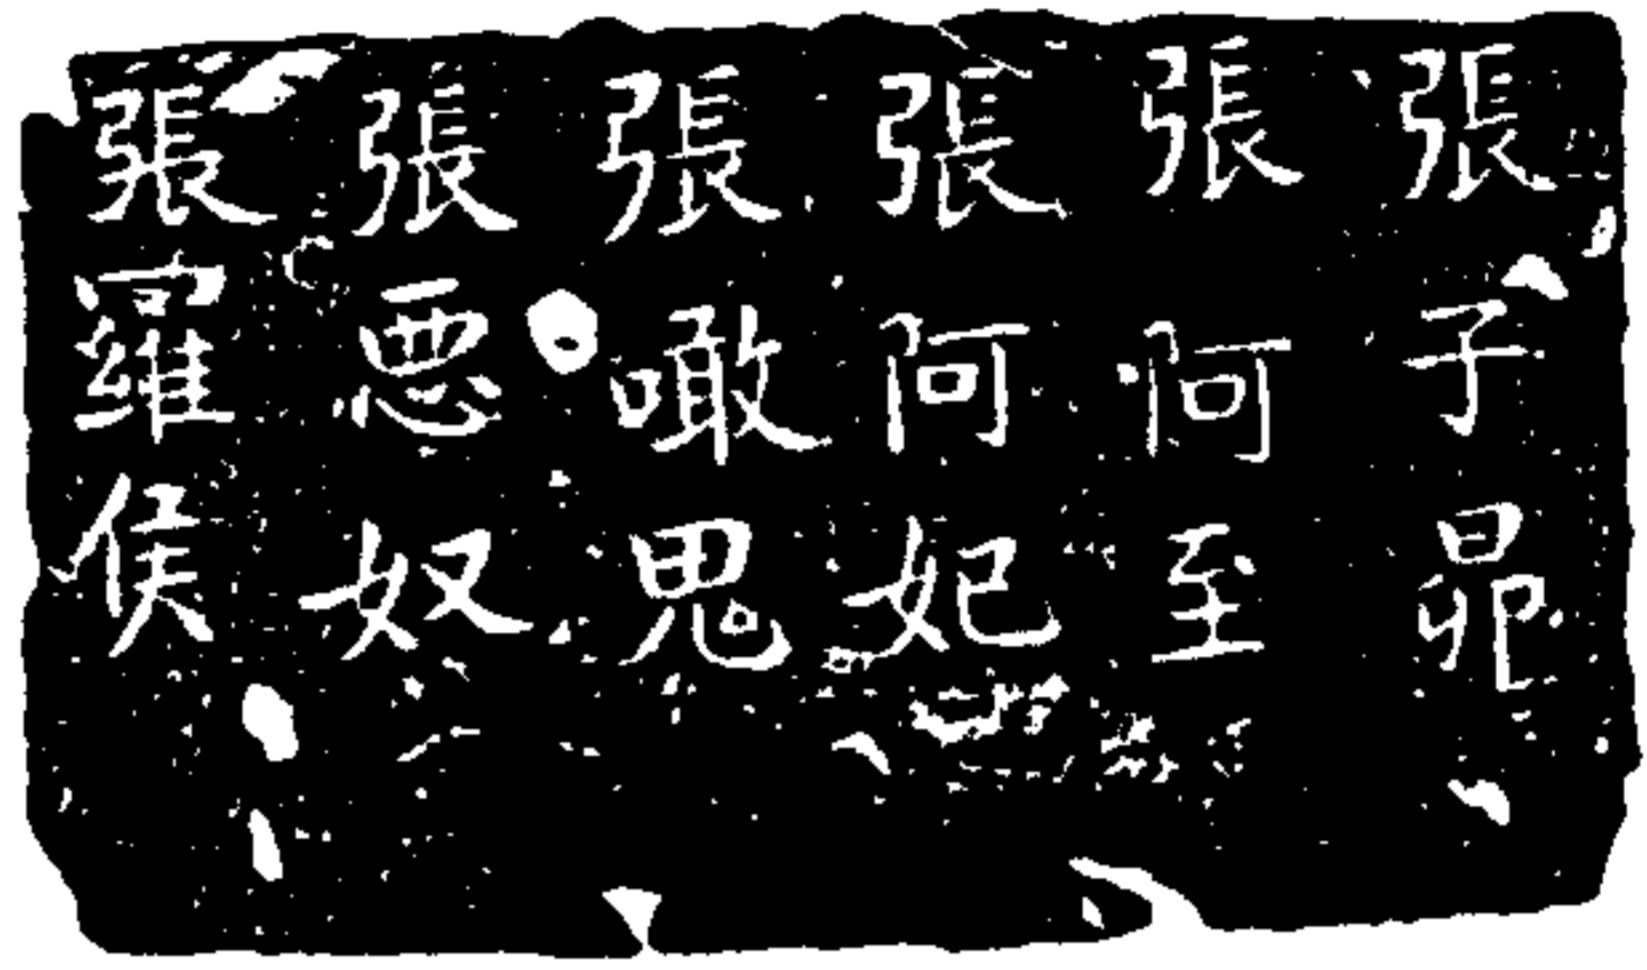 張子昴
張阿至
張阿妃
張噉鬼
張惡奴
張羅侯